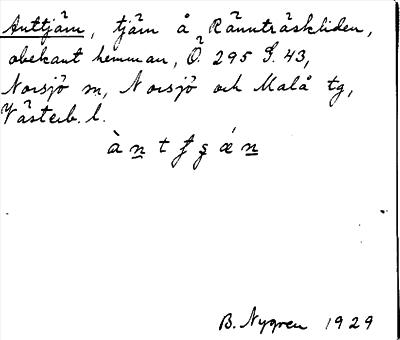 Anttjärn, tjärn å Rännträskliden,
obekant hemman, Ö. 295 S. 43,
Norsjö sn, Norsjö och Malå tg,
Västerb. l.
B. Nygren 1929